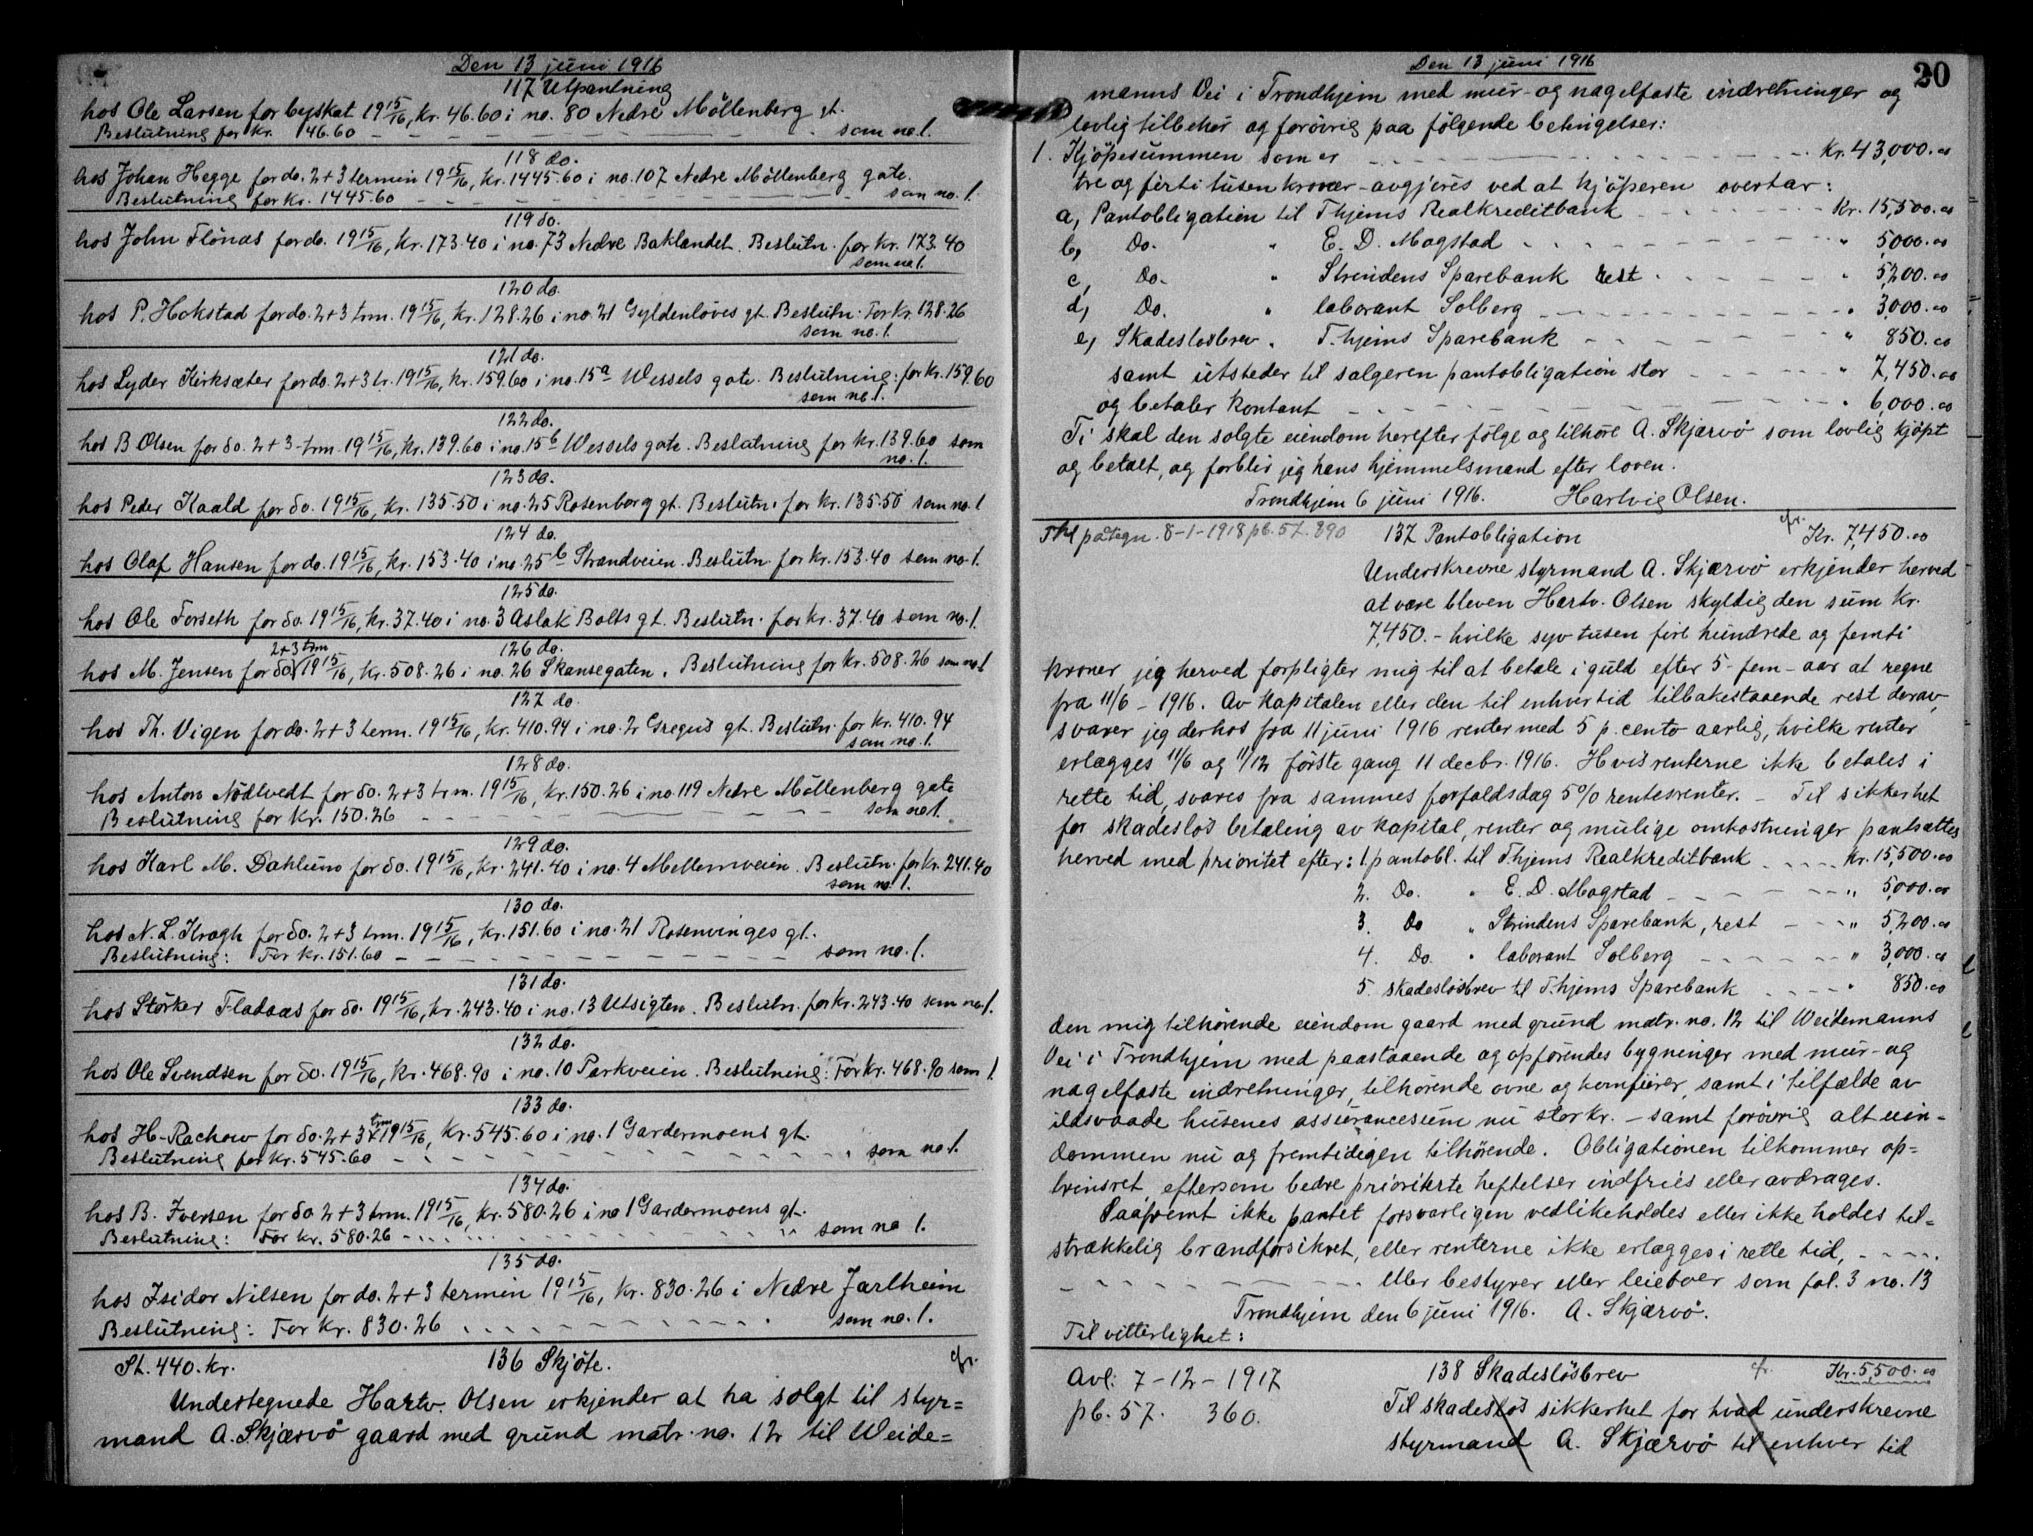 Den 13 juni 1916
117 Utpantning
hos Ole Larsen for byskat 19 15/16, kr. 46.60 i no. 80 Nedre Möllenberg gt.
Beslutning for kr. 46.60 - - - - - - - som no. 1.
118 do.
hos Johan Hegge for do. 2+3 termin 19 15/16, kr. 1445.60 i no. 107 Nedre Möllenberg gate.
Beslutning for kr. 1445.60 - - - - - - - som no. 1.
119 do.
hos John Flönæs for do. 19 15/16, kr. 173.40 i no. 73 Nedre Baklandet. Beslutn. for kr. 173.40
som no 1.
120 do.
hos P. Hokstad for do. 2+3 trm. 19 15/16, kr. 128.26 i no 21 Gyldenlöves gt. Beslutn. For kr. 128.26
som no. 1.
121 do.
hos Lyder Kirksæter for do. 2+3 tr. 19 15/16, kr. 159.60 i no. 15a Wessels gate. Beslutning: for kr. 159.60
som no. 1.
122 do.
hos B Olsen for do. 2+3 trm 19 15/16, kr. 139.60 i no. 15b Wessels gate. Beslutning for kr. 139.60 som
no. 1.
123 do.
hos Peder Kaald for do. 19 15/16, kr. 135.50 i no. 25 Rosenborg gt. Beslutn. for kr. 135.50 som no. 1
124 do.
hos Olaf Hansen for do. 19 15/16, kr. 153.40 i no. 25b Strandveien. Beslutn. for kr. 153.40 som no. 1.
125 do.
hos Ole Forseth for do. 19 15/16, kr. 37.40 i no. 3 Aslak Bolts gt. Beslutn. for kr. 37.40 som no. 1.
126 do.
2+3 trm
hos M. Jensen for do. 19 15/16, kr. 508.26 i no. 26 Skansegaten. Beslutning for kr. 508.26 som no. 1
127 do.
hos Th. Vigen for do. 2+3 term. 19 15/16, kr. 410.94 i no. 2 Gregus gt. Beslutn. for kr. 410.94
som no. 1.
128 do.
hos Anton Nödtvedt for do. 2+3 trm. 19 15/16, kr. 150.26 i no. 119 Nedre Möllenberg gate
Beslutning for kr. 150.26 - - - - - - - som no 1.
129 do.
hos Karl M. Dahlum for do. 19 15/16, kr. 241.40 i no. 4 Mellemveien. Beslutn. for kr. 241.40
som no 1.
130 do.
hos N. L. Kragh for do. 2+3 trm. 19 15/16, kr. 151.60 i no. 21 Rosenvinges gt.
Beslutning: For kr. 151.60 - - - - - - - som no. 1.
131 do.
hos Störker Fladaas for do. 19 15/16, kr. 243.40 i no. 13 Utsigten. Beslutn. for kr. 243.40 som no. 1.
132 do.
hos Ole Svendsen for do. 19 15/16, kr. 468.90 i no. 10 Parkveien. Beslutning: For kr. 468.90 som 1.
133 do.
hos H. Rachow for do. 2+3 trm 19 15/16, kr. 545.60 i no. 1 Gardermoens gt.
Beslutning for kr. 545.60 - - - - - - - som no 1.
134 do.
hos B. Iversen for do. 2+3 trm. 19 15/16, kr. 580.26 i no 1 Gardermoens gt.
Beslutning: For kr. 580.26 - - - - - - - som no 1.
135 do.
hos Isidor Nilsen for do. 2+3 termin 19 15/16, kr. 830.26 i Nedre Jarlheim
Beslutning: For kr. 830.26 - - - - - - - som no. 1.
St. 440. kr. 136 Skjöte. cfr.
Undertegnede Hartv. Olsen erkjender at ha solgt til styr=
mand A. Skjærvö gaard med grund matr. no. 12 til Weide=
Den 13 juni 1916
20
manns Vei i Trondhjem med mur- og nagelfaste indretninger og
lovlig tilbehör og forövrig paa fölgende betingelser:
1. Kjöpesummen som er - - - - - - - kr. 43,000.00
tre og firti tusen kroner - avgjöres ved at kjöperen overtar:
a, Pantobligation til T hjems Realkreditbank - - - - kr. 15,500.00
b, Do. " E. D. Mogstad - - - - " 5,000.00
c, Do. " Strindens Sparebank rest - - - - " 5,200.00
d, Do. " laborant Solberg - - - - " 3,000.00
e, Skadeslösbrev " T. hjems Sparebank - - - - " 850.00
samt utsteder til sælgeren pantobligation stor - - - - " 7,450.00
og betaler kontant - - - - " 6,000.00
Ti skal den solgte eiendom herefter fölge og tilhöre A. Skjærvö som lovlig kjöpt
og betalt, og forblir jeg hans hjemmelsmand efter loven.
Trondhjem 6 juni 1916. Hartvig Olsen.
Thl påtegn. 8-1-1918 pb. 57. 390 137 Pantobligation cfr. Kr. 7,450.00
Underskrevne styrmand A. Skjærvö erkjender herved
at være bleven Hartv. Olsen skyldig den sum kr.
7,450.- hvilke syv tusen fire hundrede og femti
kroner jeg herved forpligter mig til at betale i guld efter 5 - fem - aar at regne
fra 11/6 - 1916. Av kapitalen eller den til enhver tid tilbakestaaende rest derav,
svarer jeg derhos fra 11 juni 1916 renter med 5 p. cento aarlig, hvilke renter
erlægges 11/6 og 11/12 förste gang 11 decbr. 1916. Hvis renterne ikke betales i
rette tid, svares fra sammes forfaldsdag 5% rentesrenter. - Til sikkerhet
for skadeslös betaling av kapital, renter og mulige omkostninger pantsættes
herved med prioritet efter: 1. pantobl. til T hjems Realkreditbank - - - - kr. 15,500.00
2. Do. " E. D. Mogstad - - - - " 5,000.00
3. Do " Strindens Sparebank, rest - - - " 5,200.00
4. Do. " laborant Solberg - - - - " 3,000.00
5. skadeslösbrev til T. hjems Sparebank - - - - " 850.00
den mig tilhörende eiendom gaard med grund matr. no. 12 til Weidemanns
Vei i Trondhjem med paastaaende og opförendes bygninger med mur- og
nagelfaste indretninger, tilhörende ovne og komfurer, samt i tilfælde av
ildsvaade husenes assurancesum nu stor kr. - samt forövrig alt eien-
dommen nu og fremtidigen tilhörende. Obligationen tilkommer op=
trinsret, eftersom bedre prioriterte heftelser indfries eller avdrages.
Saafremt ikke pantet forsvarligen vedlikeholdes eller ikke holdes til=
strækkelig brandforsikret, eller renterne ikke erlægges i rette tid, - - - -
- - - - - - - eller bestyrer eller leieboer som fol. 3 no. 13
Trondhjem den 6 juni 1916. A. Skjærvö.
Til vitterlighet:
Avl. 7-12-1917 138 Skadeslösbrev cfr. Kr. 5,500.00
pb. 57. 360. Til skadeslös sikkerhet for hvad underskrevne
styrmand A. Skjærvö til enhver tid